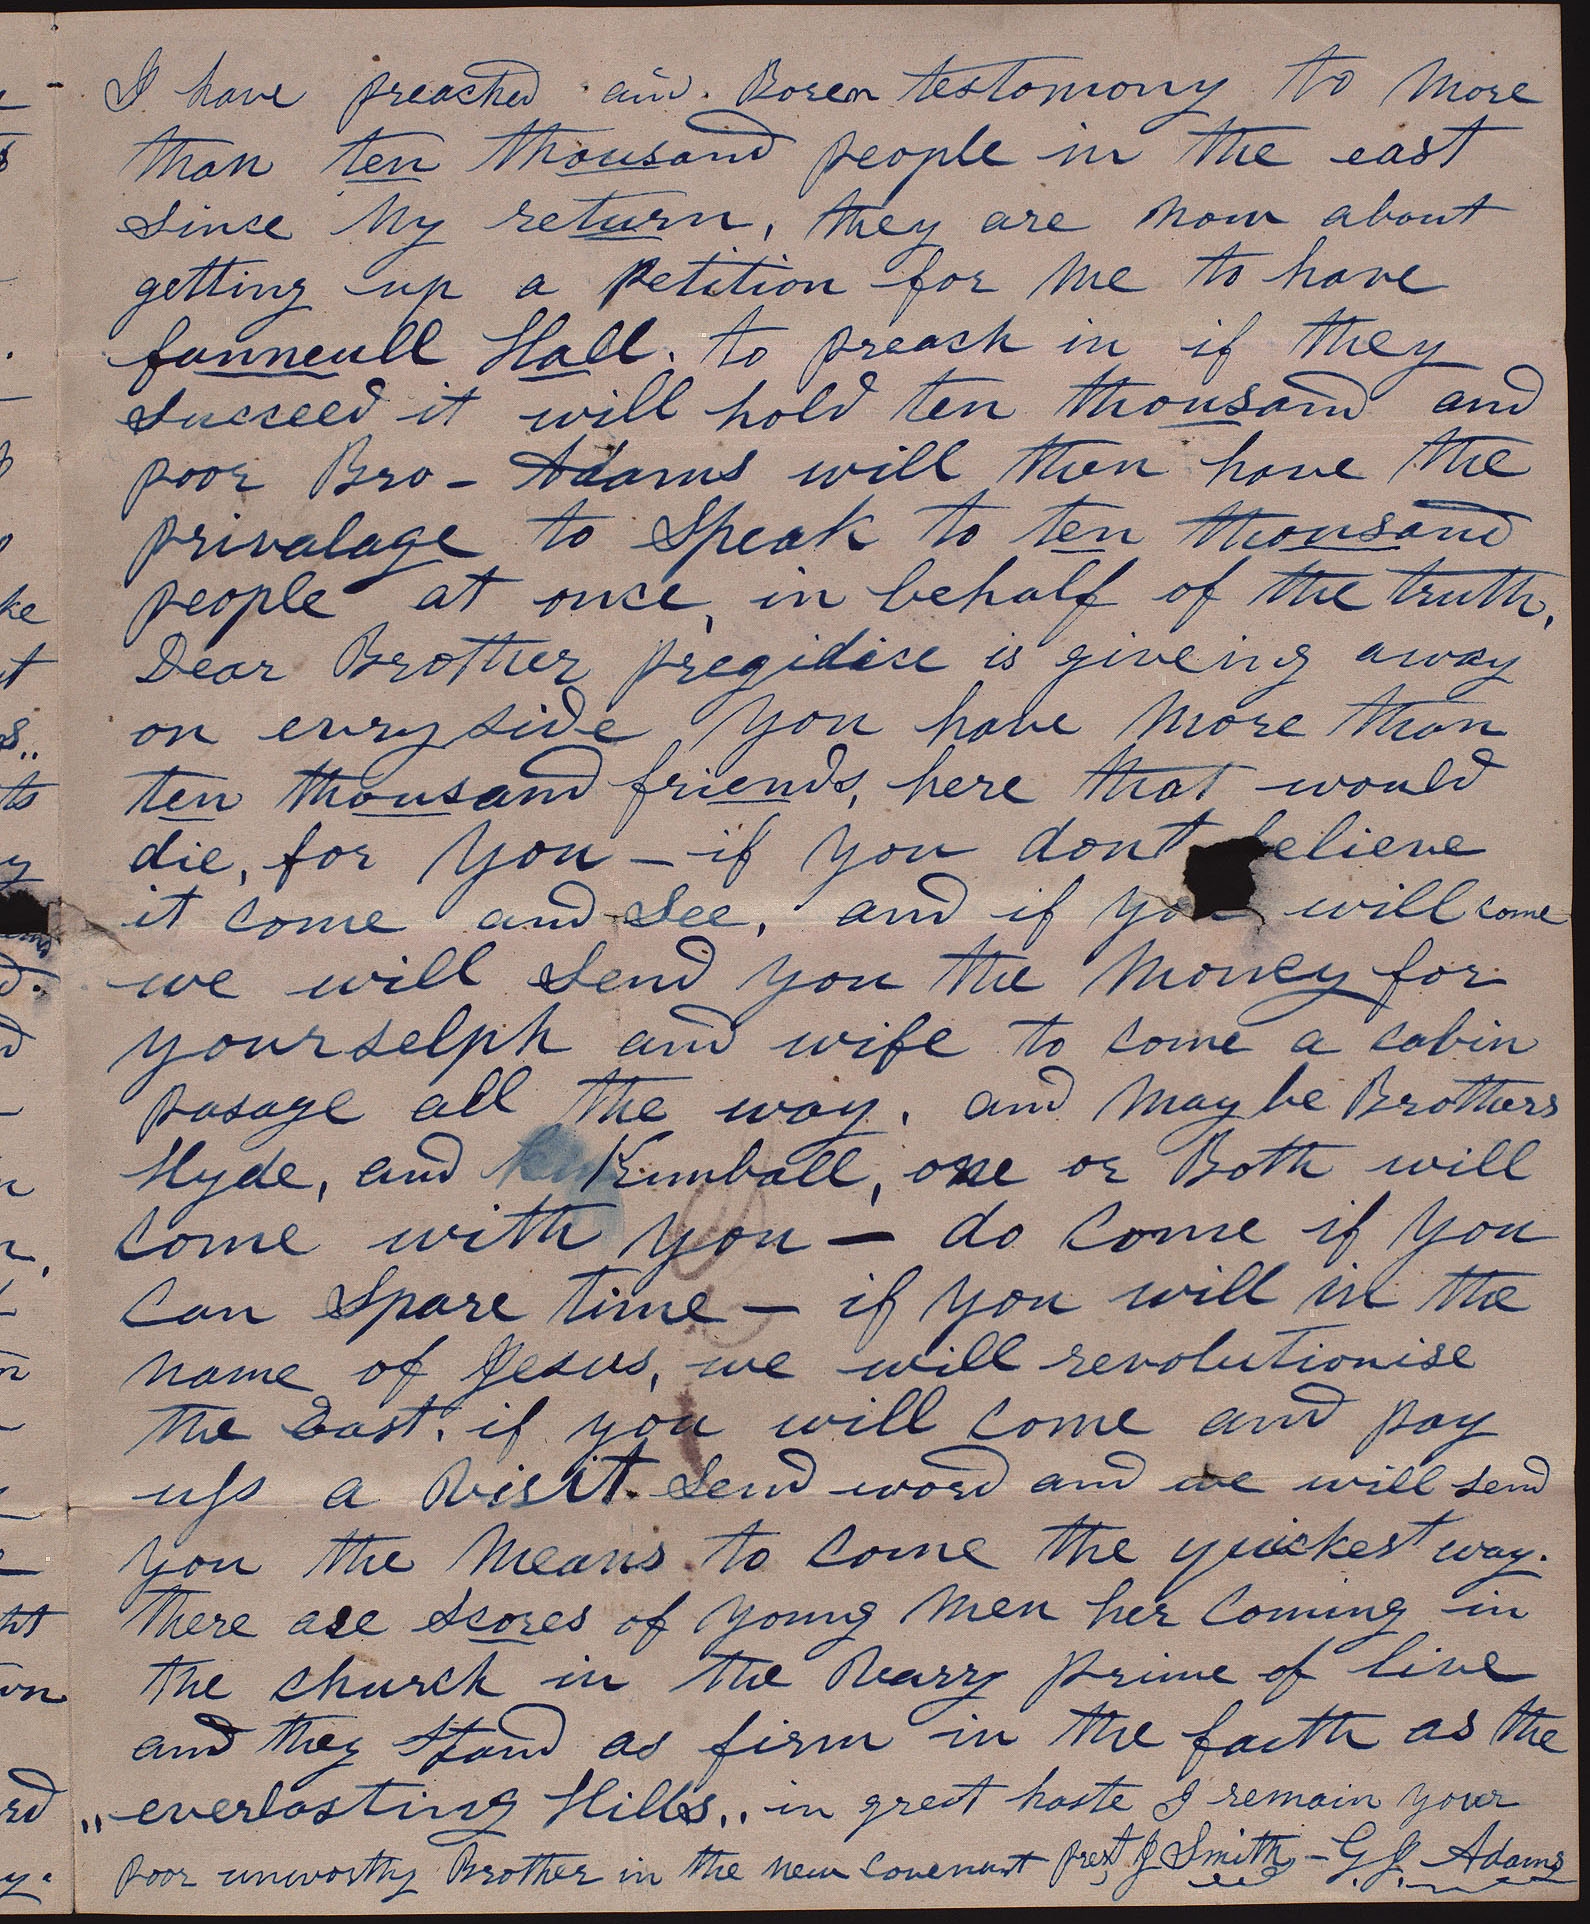 I have preached and Boren testomony to more
than ten thousand people in the east
since My return, they are now about
getting up a Petition for Me to have
funneull Hall. to preach in if they
succeed it will hold ten thousand and
poor Bro - Adams will then have the
privalage to Speak to ten thousand
people at once, in behalf of the truth,
Dear Brother pregidice is giveing away
on evry side you have More than
ten thousand friends, here that would
die, for you - if you dont believe
it come and See, and if you will come
we will Send you the Money for
yourselph and wife to come a cabin
pasage all the way, and May be Brothers
Hyde, and Kimball, one or Both will
come with you - do come if you
can Spare time - if you will in the
name of Jesus, we will revolutionise
the East. if you will come and pay
uss a visit. Send word and we will send
you the Means to come the quickest way.
there are scores of young Men her coming in
the church in the veary prime of live
and they Stand as firm in the faith as the
"everlasting Hills,, in great haste I remain your
poor unworthy Brother in the new covenant prest J Smith - G. J. Adams